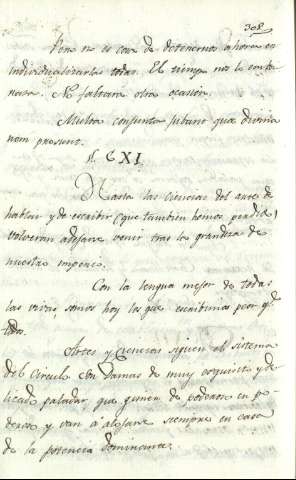 308.
Pero no es cosa de detenernos ahora en
individualizarlas todas. El tiempo nos lo conta-
nacia. No faltará otra ocasión.
Multa conjunta jubant quae divisa
nom present.
CXI.
Hasta las ciencias del arte de
hablar y de escribir (que también hemos perdido)
volveran a dejarse venir tras las grandezas de
nuestro imperio.
Con la lengua mejor de todas
las vivas somos hoy los que escribimos peor q.e
todos.
Artes y Ciencias siguen al sistema
del Circulo. Son Damas de muy exquisito y de-
licado paladar, que gustan de poderoso en po-
deroso y van á alojarse siempre en casa
de la potencia dominante.